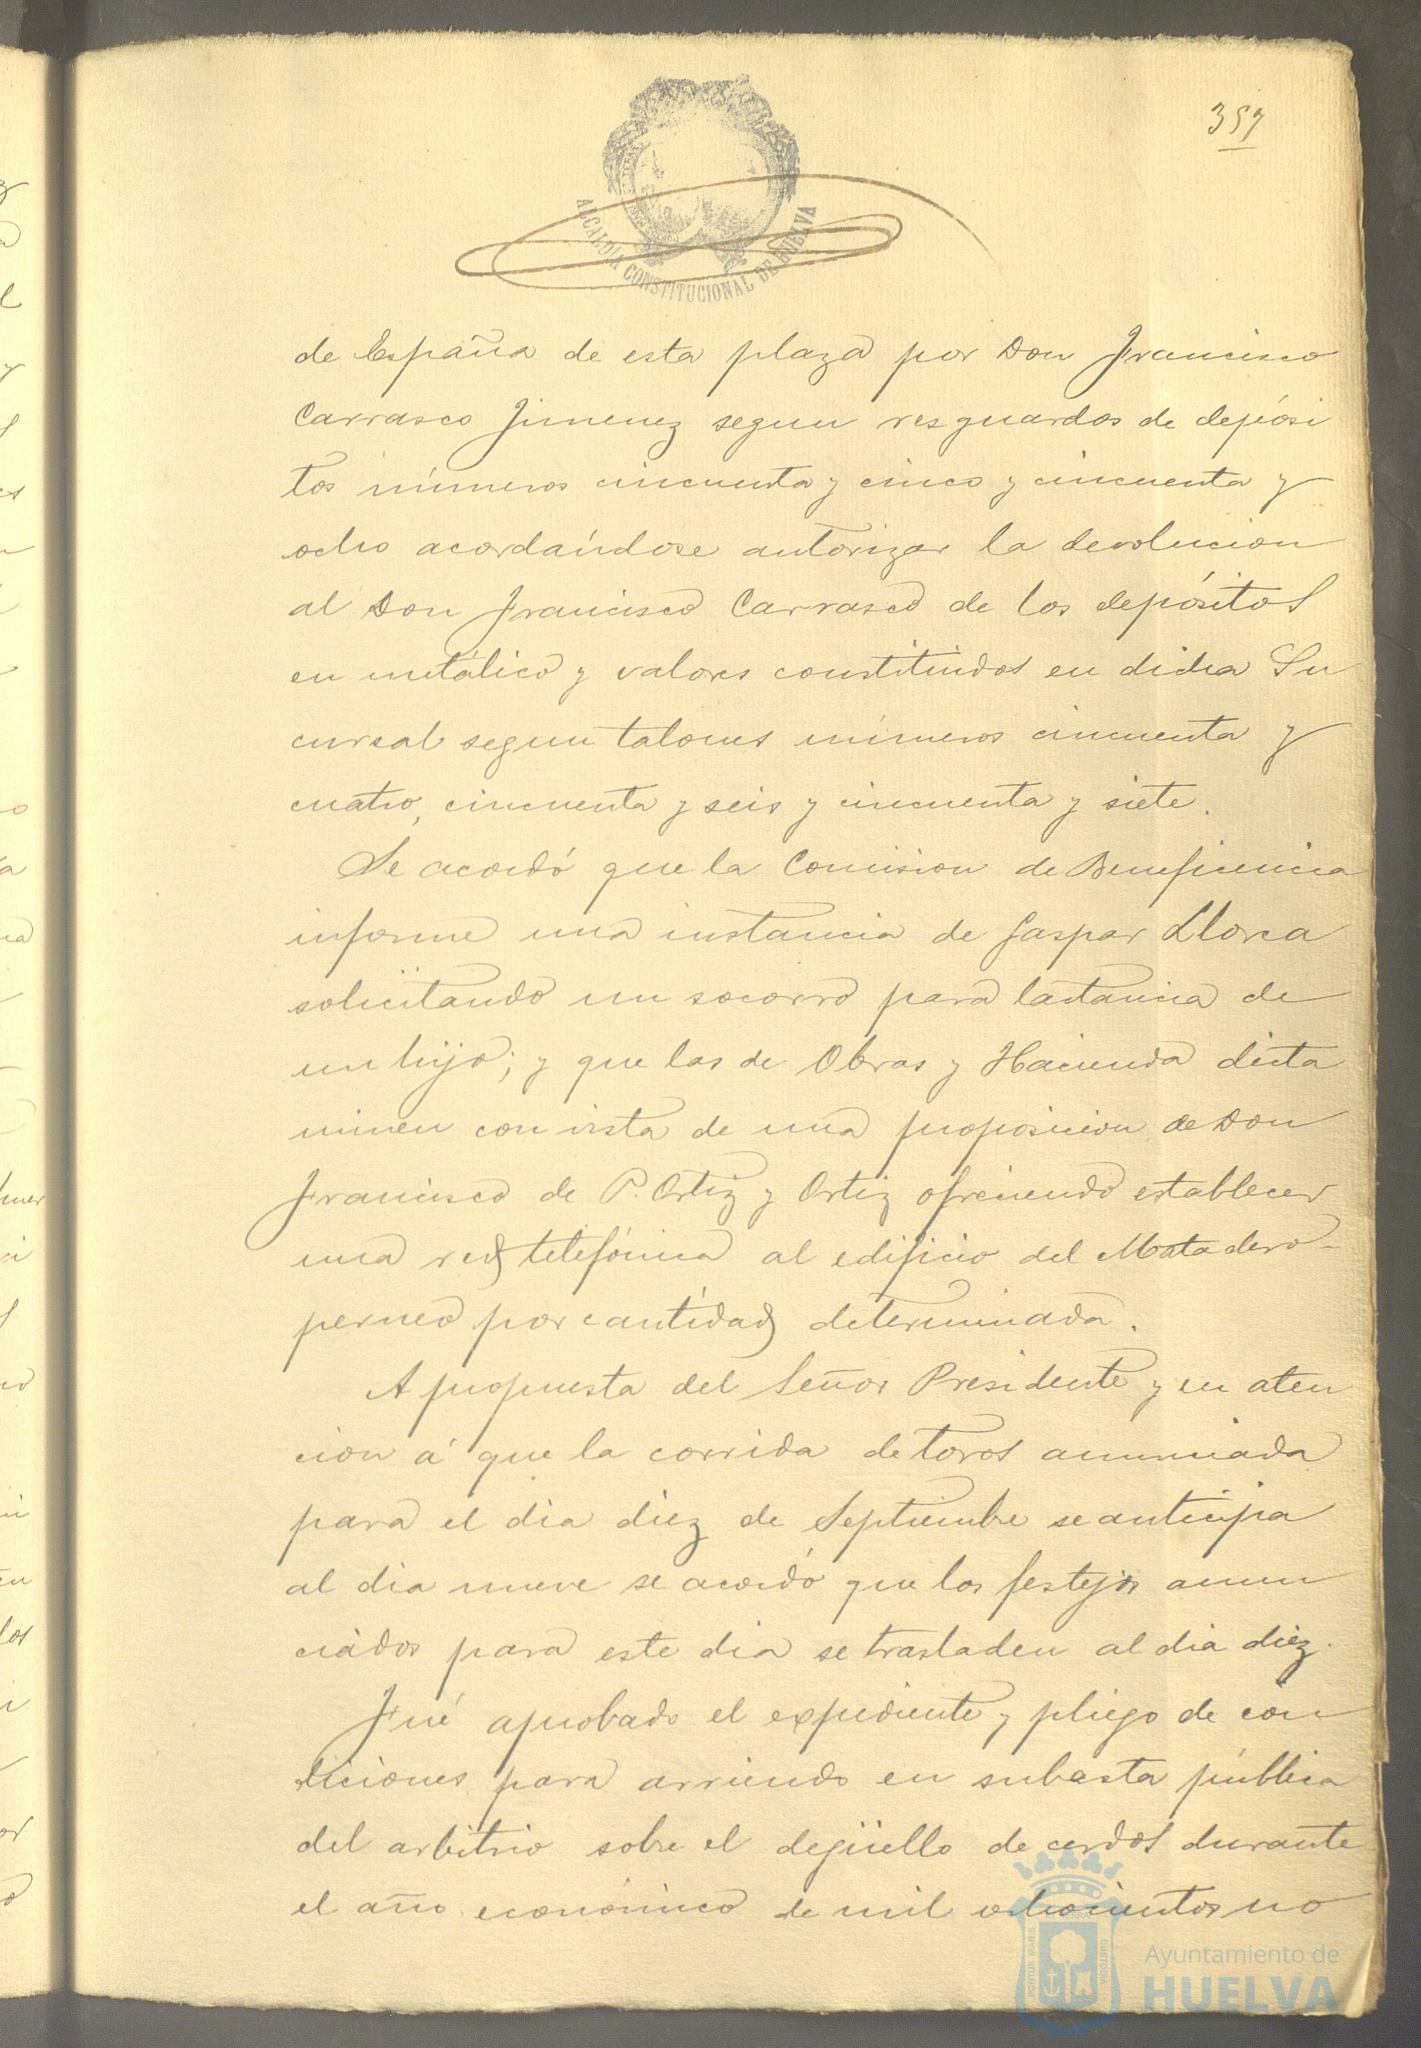 357
ALCALDIA CONSTITUCIONAL DE HUELVA
de España de esta plaza por Don Francisco
Carrasco Jimenez segun resguardos de depósi
tos números cincuenta y cinco y cincuenta y
ocho acordándose autorizar la devolucion
al Don Francisco Carrasco de los depósitos
en metálico y valores constituidos en dicha Su
cursal segun talones números cincuenta y
cuatro, cincuenta y seis y cincuenta y siete.
Se acordó que la Comision de Beneficencia
informe una instancia de Gaspar Llorca
solicitando un socorro para lactancia de
un hijo; y que las de Obras y Hacienda dicta
minen con vista de una proposicion de Don
Francisco de P. Ortiz y Ortiz ofreciendo establecer
una red telefónica al edificio del Matadero
perneo por cantidad determinada.
A propuesta del Señor Presidente y en aten
cion á que la corrida de toros anunciada
para el dia diez de Septiembre se anticipa
al dia nueve se acordó que los festejos anun
ciados para este dia se trasladen al dia diez.
Fué aprobado el expediente y pliego de con
diciones para arriendo en subasta pública
del arbitrio sobre el degüello de cerdos durante
el año económico de mil ochocientos no
PORTUS MARIS
CUSTODIA
Ayuntamiento de
HUELVA